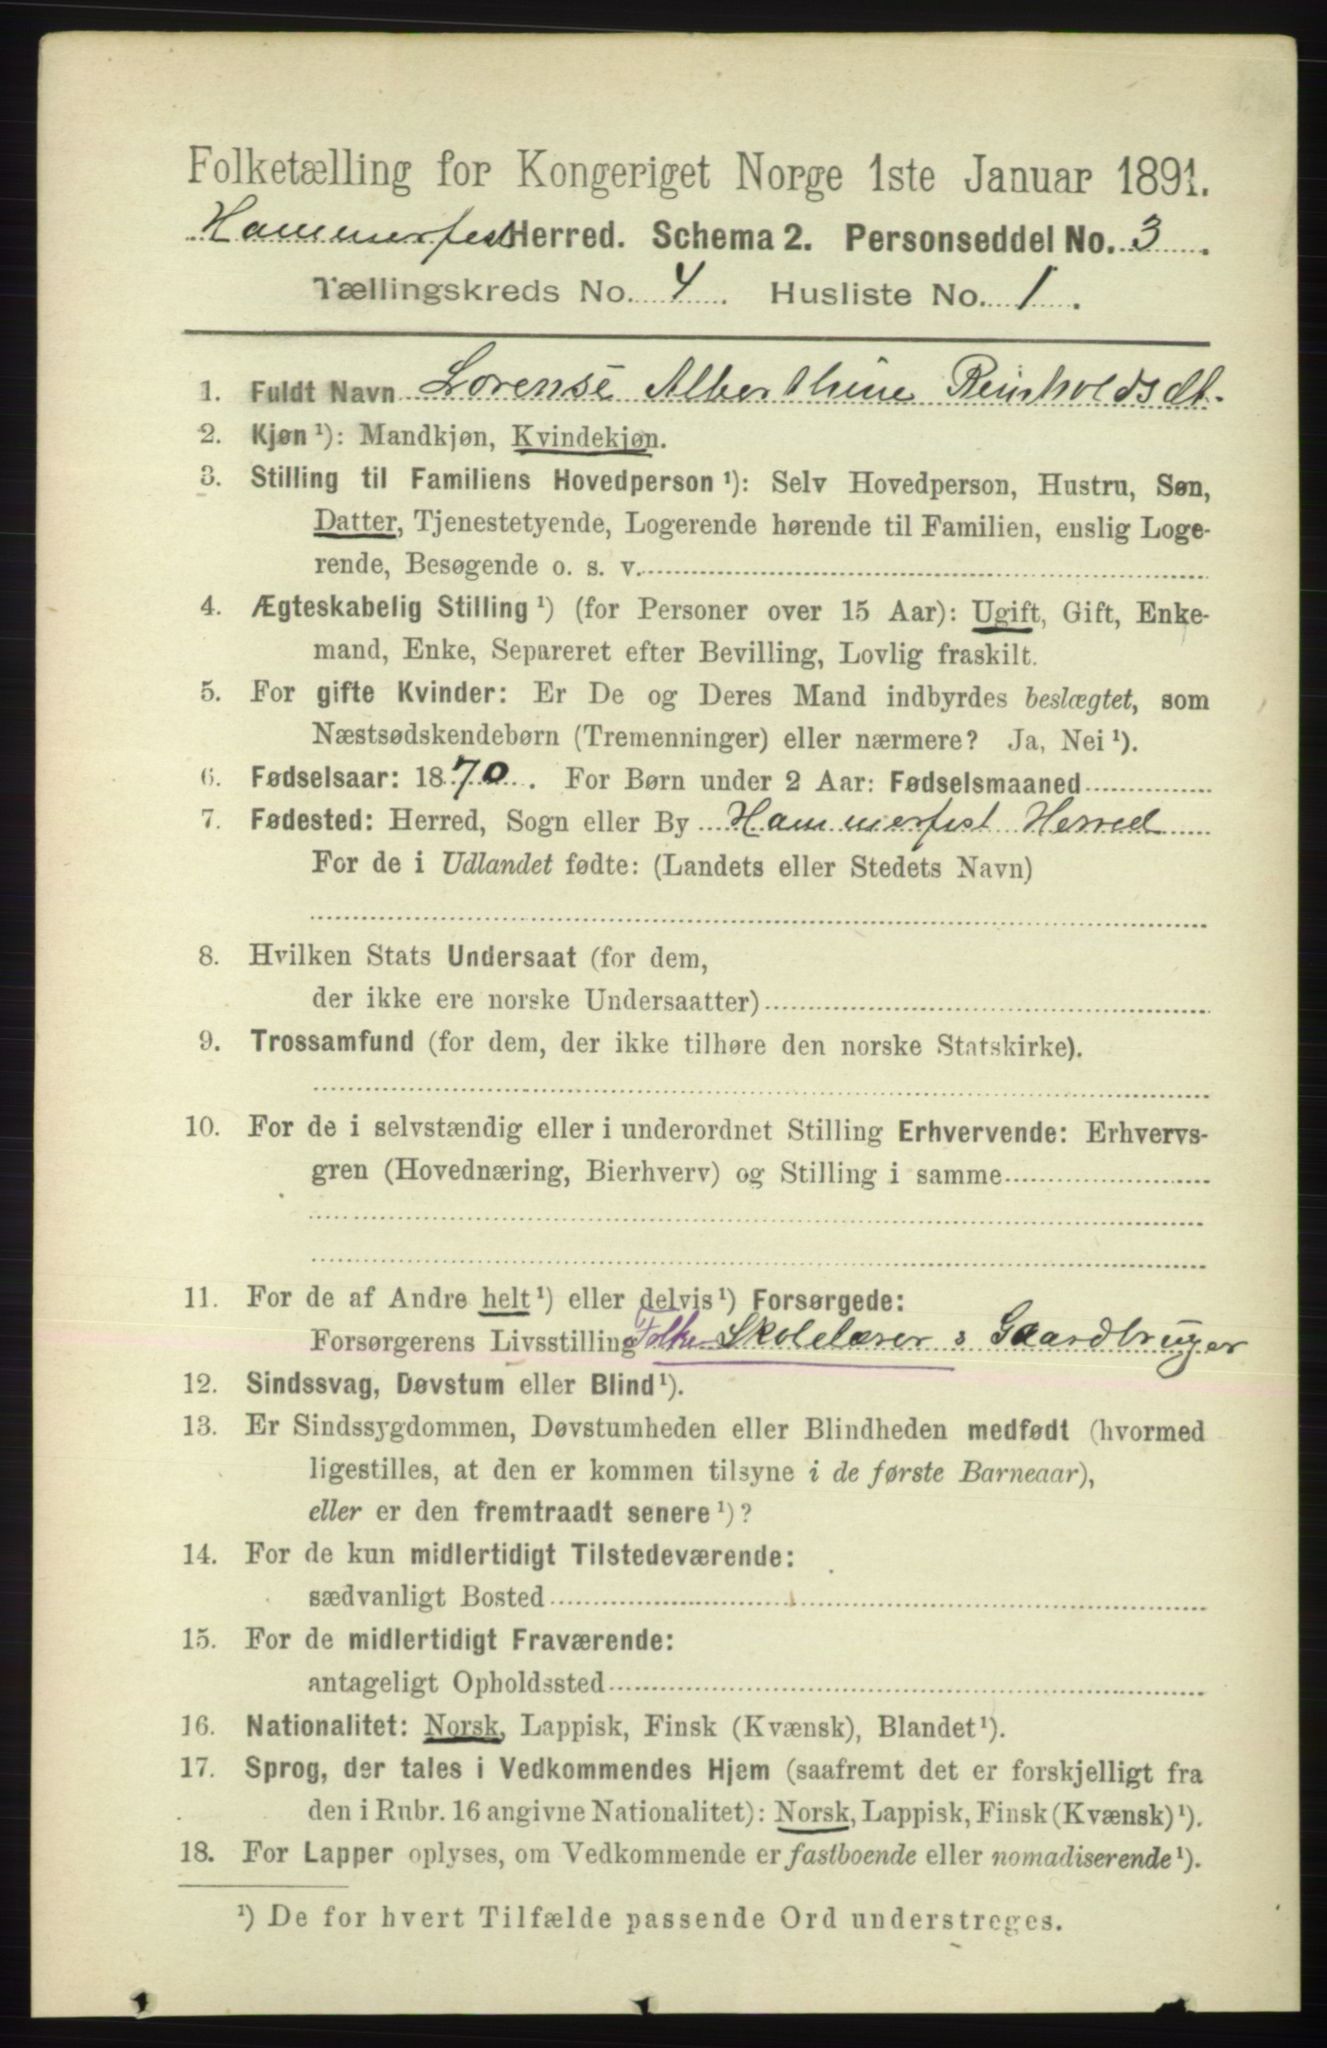 Folketælling for Kongeriget Norge 1ste Januar 1891.
Hammerfest Herred. Schema 2. Personseddel No. 3.
Tællingskreds No. 4. Husliste No. 1.
1. Fuldt Navn Lorense Alberthine Reinholdsdt.
2. Kjøn ¹): Mandkjøn, Kvindekjøn.
3. Stilling til Familiens Hovedperson ¹): Selv Hovedperson, Hustru, Søn,
Datter, Tjenestetyende, Logerende hørende til Familien, enslig Loge-
rende, Besøgende o. s. v.
4. Ægteskabelig Stilling ¹) (for Personer over 15 Aar): Ugift, Gift, Enke-
mand, Enke, Separeret efter Bevilling, Lovlig fraskilt.
5. For gifte Kvinder: Er De og Deres Mand indbyrdes beslægtet, som
Næstsødskendebørn (Tremenninger) eller nærmere? Ja, Nei ¹).
6. Fødselsaar: 1870. For Børn under 2 Aar: Fødselsmaaned
7. Fødested: Herred, Sogn eller By Hammerfest Herred
For de i Udlandet fødte: (Landets eller Stedets Navn)
8. Hvilken Stats Undersaat (for dem,
der ikke ere norske Undersaatter)
9. Trossamfund (for dem, der ikke tilhøre den norske Statskirke).
10. For de i selvstændig eller i underordnet Stilling Erhvervende: Erhvervs-
gren (Hovednæring, Bierhverv) og Stilling i samme
11. For de af Andre helt ¹) eller delvis ¹) Forsørgede:
Forsørgerens Livsstilling Folke Skolelærer & Gaardbruger
12. Sindssvag, Døvstum eller Blind ¹).
13. Er Sindssygdommen, Døvstumheden eller Blindheden medfødt (hvormed
ligestilles, at den er kommen tilsyne i de første Barneaar),
eller er den fremtraadt senere ¹)?
14. For de kun midlertidigt Tilstedeværende:
sædvanligt Bosted
15. For de midlertidigt Fraværende:
antageligt Opholdssted
16. Nationalitet: Norsk, Lappisk, Finsk (Kvænsk), Blandet ¹).
17. Sprog, der tales i Vedkommendes Hjem (saafremt det er forskjelligt fra
den i Rubr. 16 angivne Nationalitet): Norsk, Lappisk, Finsk (Kvænsk) ¹).
18. For Lapper oplyses, om Vedkommende er fastboende eller nomadiserende ¹).
¹) De for hvert Tilfælde passende Ord understreges.